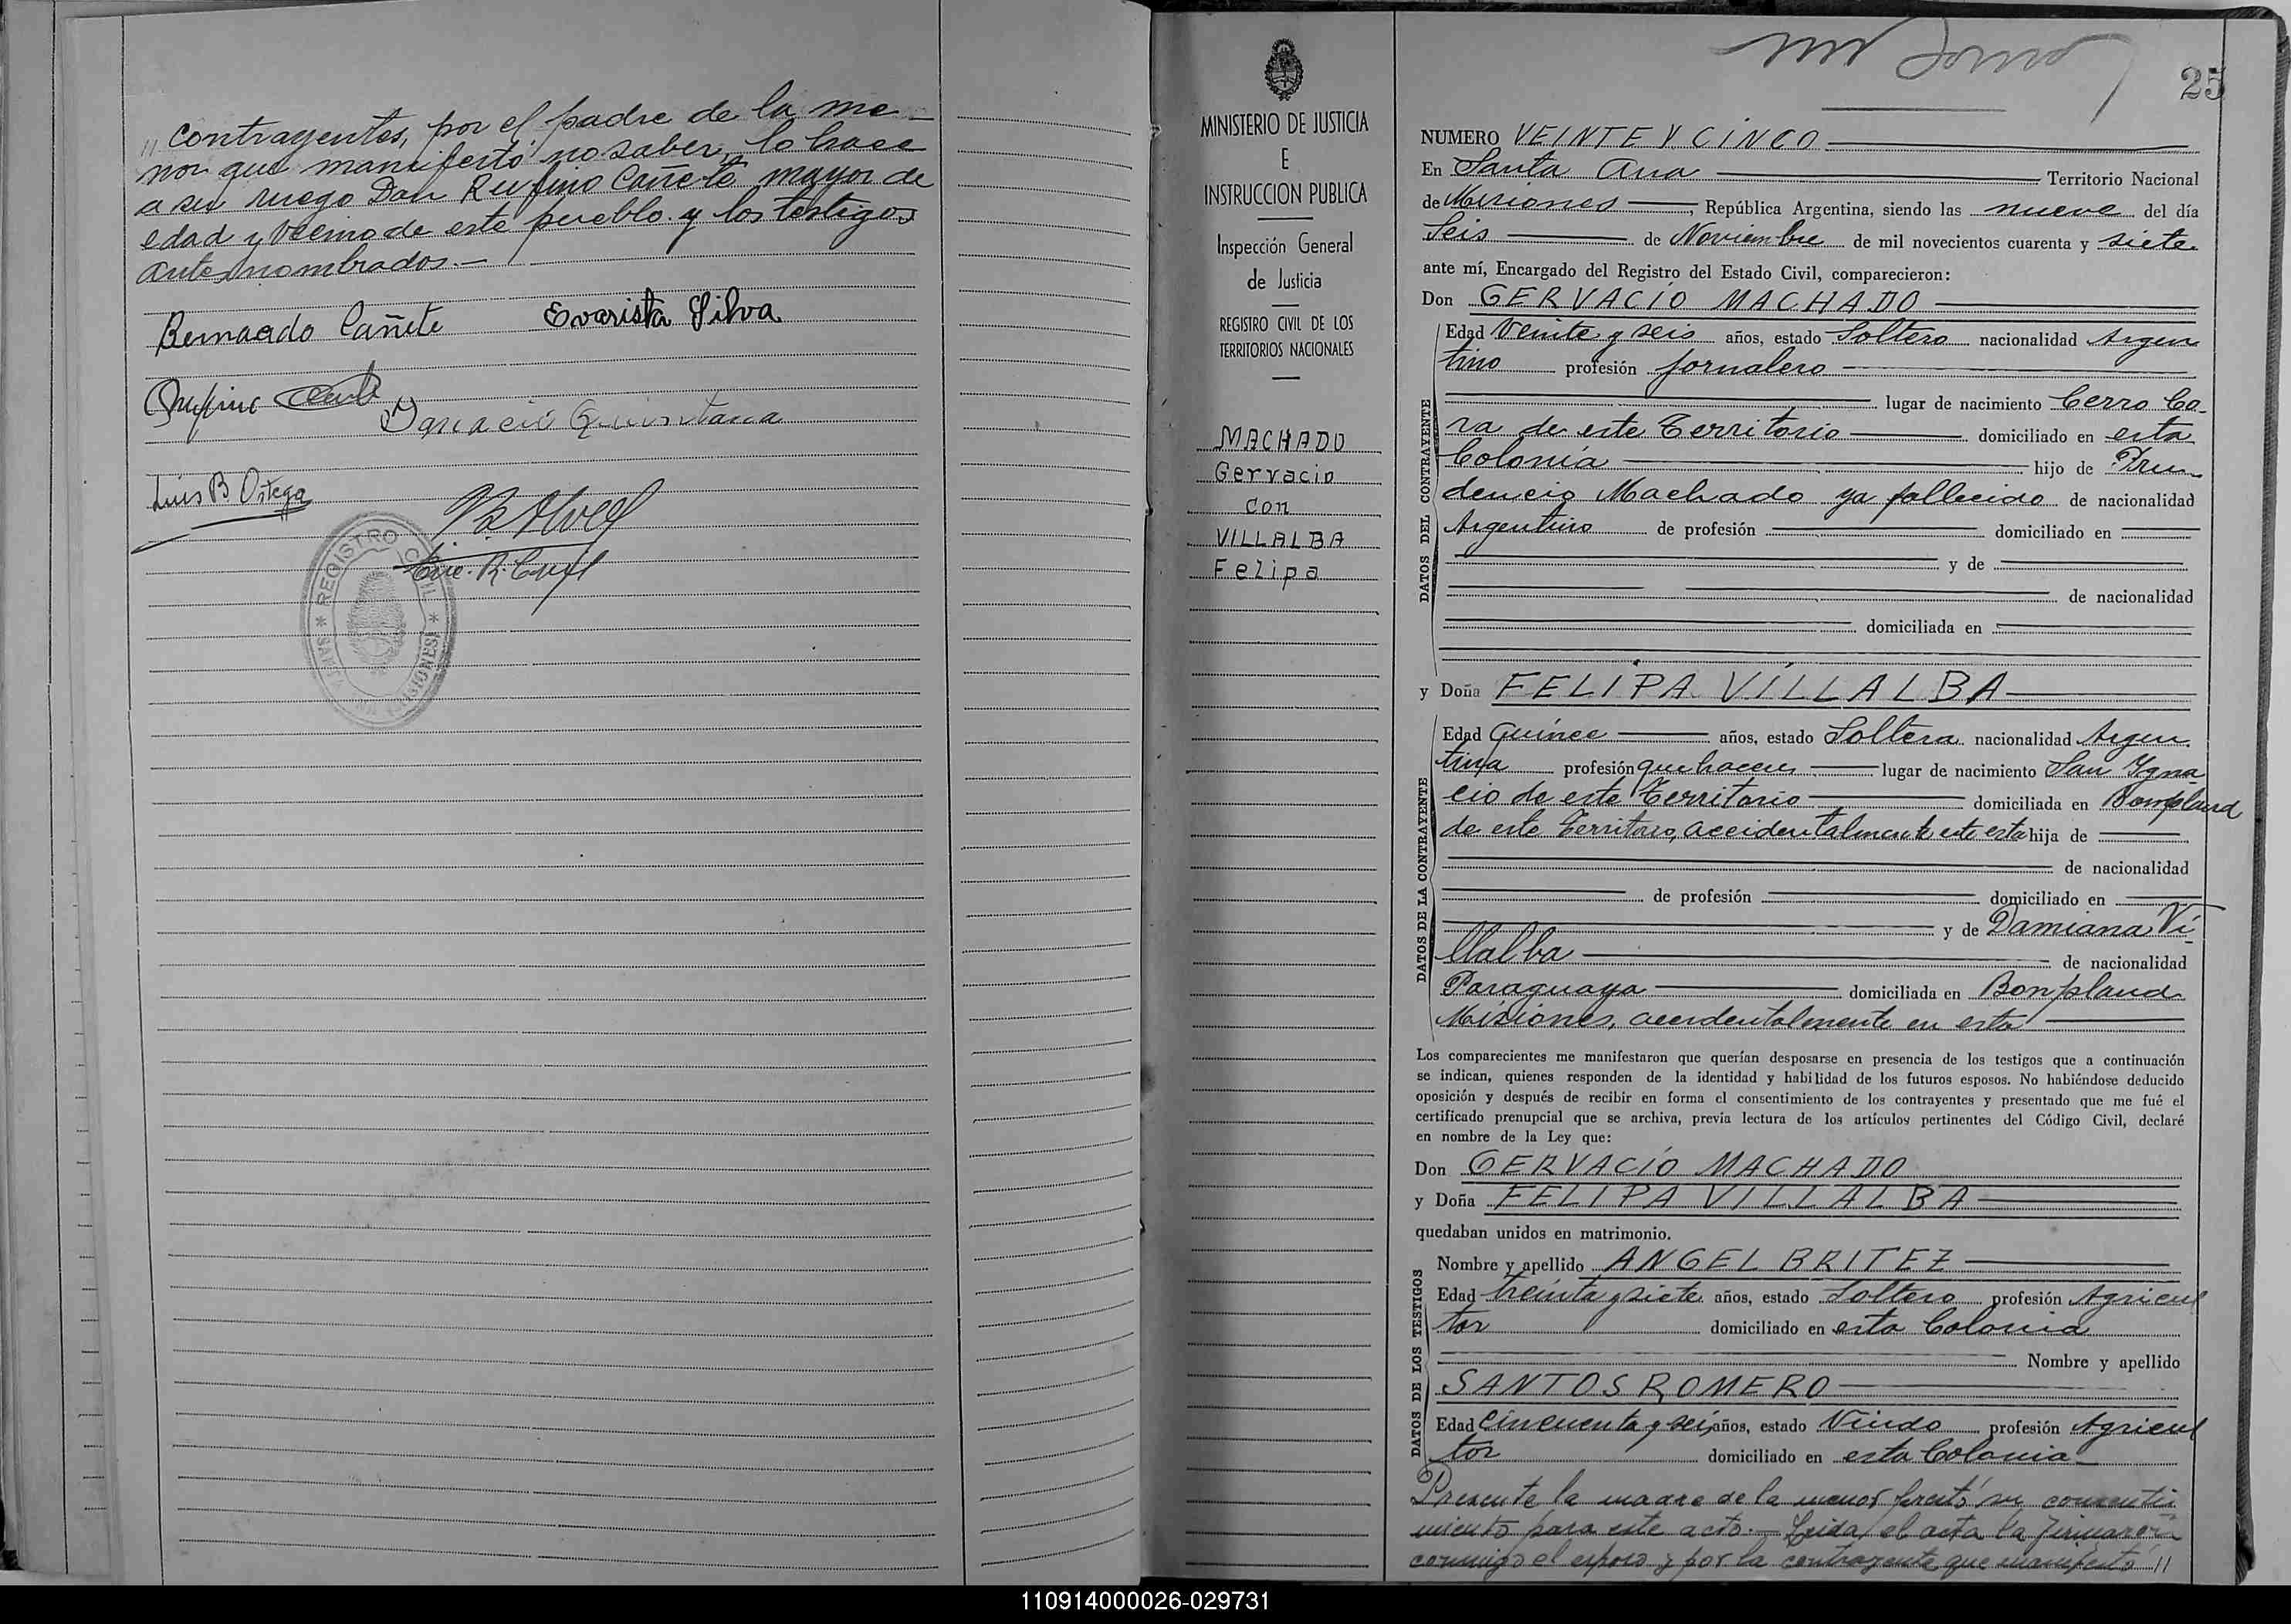 " contrayentes, por el padre de la me-
nor que manifestó no saber, lo hace
a su ruego Don Rufino Cañete mayor de
edad y vecino de este pueblo y los testigos
antes nombrados.-
Bernardo Cañete Evarista Silva
Rufino
Ignacio Quintana
Luis B Ortega
REGISTRO CIVIL
MISIONES
MINISTERIO DE JUSTICIA
E
INSTRUCCION PUBLICA
Inspección General
de Justicia
REGISTRO CIVIL DE LOS
TERRITORIOS NACIONALES
MACHADO
Gervacio
con
VILLALBA
Felipa
25
NUMERO VEINTE Y CINCO
En Santa Ana Territorio Nacional
de Misiones, República Argentina, siendo las nueve del día
Seis de Noviembre de mil novecientos cuarenta y siete
ante mí, Encargado del Registro del Estado Civil, comparecieron:
Don GERVACIO MACHADO
DATOS DEL CONTRAYENTE
Edad Veinte y seis años, estado Soltero nacionalidad Argen
tino profesión jornalero
lugar de nacimiento Cerro Co-
ra de este Territorio domiciliado en esta
Colonia hijo de Pru
dencio Machado ya fallecido de nacionalidad
Argentino de profesión domiciliado en
y de
de nacionalidad
domiciliada en
y Doña FELIPA VILLALBA
DATOS DE LA CONTRAYENTE
Edad Quince años, estado Soltera nacionalidad Argen
tina profesión quehaceres lugar de nacimiento San Ygna
cio de este Territorio domiciliada en Bompland
de este Territorio, accidentalmente en esta hija de
de nacionalidad
de profesión domiciliado en
y de Damiana Vi
llalba de nacionalidad
Paraguaya domiciliada en Bonpland
Misiones, accidentalmente en esta
Los comparecientes me manifestaron que querían desposarse en presencia de los testigos que a continuación
se indican, quienes responden de la identidad y habilidad de los futuros esposos. No habiéndose deducido
oposición y después de recibir en forma el consentimiento de los contrayentes y presentado que me fué el
certificado prenupcial que se archiva, previa lectura de los artículos pertinentes del Código Civil, declaré
en nombre de la Ley que:
Don GERVACIO MACHADO
y Doña FELIPA VILLALBA
quedaban unidos en matrimonio.
DATOS DE LOS TESTIGOS
Nombre y apellido ANGEL BRITEZ
Edad treinta y siete años, estado Soltero profesión Agricul
tor domiciliado en esta Colonia
Nombre y apellido
SANTOS ROMERO
Edad Cincuenta y seis años, estado Viudo profesión Agricul
tor domiciliado en esta Colonia
Presente la madre de la menor prestó su consenti
miento para este acto.- Leida el acta la firmaron
conmigo el esposo y por la contrayente que manifestó "
110914000026-029731